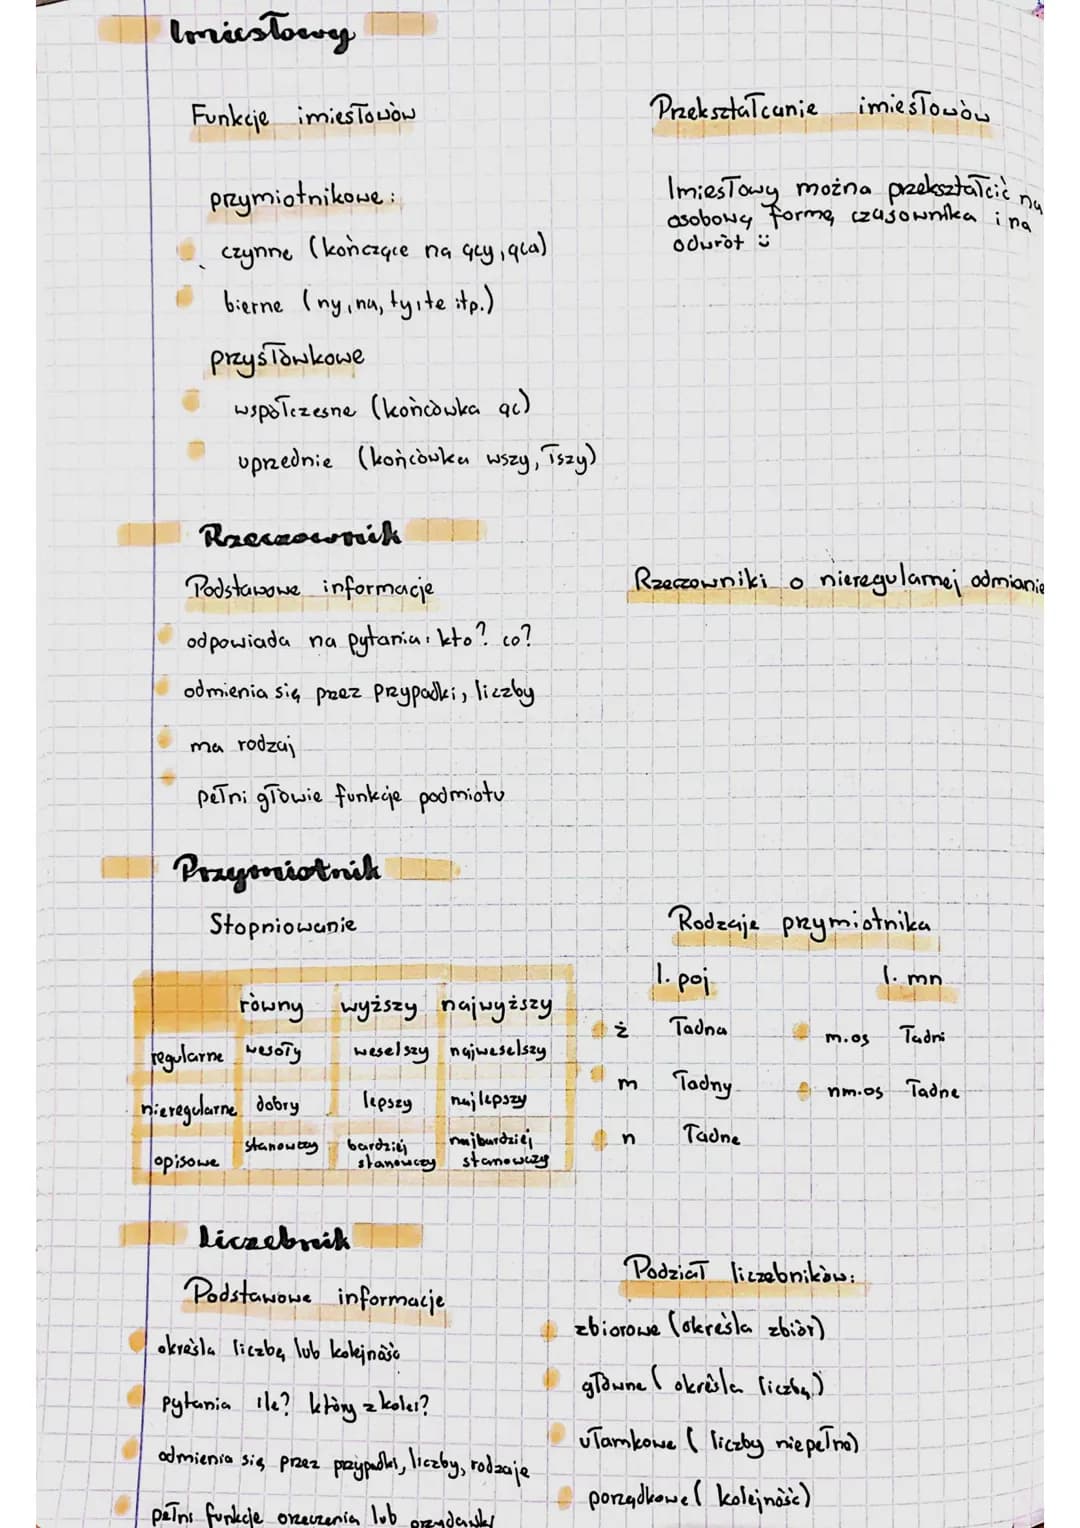 Imiesłowy
Funkcje imiesłowów
przymiotnikowe:
czynne (kończące na ący, ąca)
bierne (ny, na, ty, te itp.)
przysłówkowe
współczesne (końcówka ąc)
uprzednie (końcówka wszy, łszy)
Przekształcanie imiesłowów
Imiesłowy można przekształcić na
osobową formę czasownika i na
odwrót
Rzeczownik
Podstawowe informacje
odpowiada na pytania: kto? co?
odmienia się przez przypadki, liczby
ma rodzaj
pełni głowie funkcje podmiotu
Rzeczowniki o nieregularnej odmianie
Przymiotnik
Stopniowanie
równy wyższy najwyższy
regularne wesoły weselszy najweselszy
nieregularne dobry lepszy najlepszy
opisowe stanowczy bardziej stanowczy najbardziej stanowczy
Rodzaje przymiotnika
l. poj l. mn
ż ładna m.os ładni
m ładny nm.os ładne
n ładne
Liczebnik
Podstawowe informacje
określa liczbę lub kolejność
pytania ile? który z kolei?
odmienia się przez przypadki, liczby, rodzaje
pełni funkcje orzeczenia lub przydawki
Podział liczebników:
zbiorowe (określa zbiór)
główne (określa liczbę)
ułamkowe (liczby niepełna)
porządkowe (kolejność)